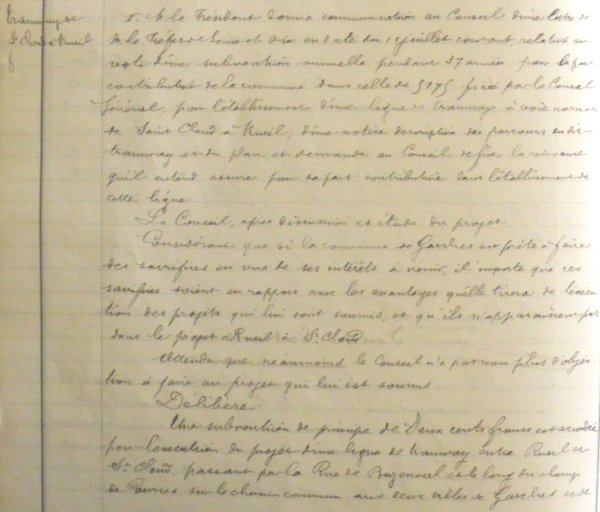 Tramway de
St Cloud à Rueil
1. M. le Président donne communication au Conseil d'une lettre de
M. le Préfet de Seine et Oise en date du 1 juillet courant, relative au
vote d'une subvention annuelle pendant 37 années pour la part
contributive de la commune dans celle de 5175 f fixée par le Conseil
Général, pour l'établissement d'une ligne de tramway à voie normale
de Saint Cloud à Rueil, d'une notice descriptive des parcours du dit
tramway et du plan et demande au Conseil de fixer la redevance
qu'il entend assurer pour sa part contributive dans l'établissement de
cette ligne
Le Conseil, après discussion et étude du projet.
Considérant que si la commune de Garches est prête à faire
des sacrifices en vue de ses intérêts à venir, il importe que ces
sacrifices soient en rapport avec les avantages qu'elle tirera de l'exécu-
tion des projets qui lui sont soumis, et qu'ils n'apparaissent pas
dans le projet Rueil à St Cloud
Attendu que néanmoins le Conseil n'a pas non plus d'objec-
tion à faire au projet qui lui est soumis
Délibère
Une subvention de principe de Deux cents francs est accordée
pour l'exécution du projet d'une ligne de tramway entre Rueil et
St Cloud, passant par la Rue de Buzenval et le long du champ
de Courses sur le chemin commun aux deux villes de Garches et de